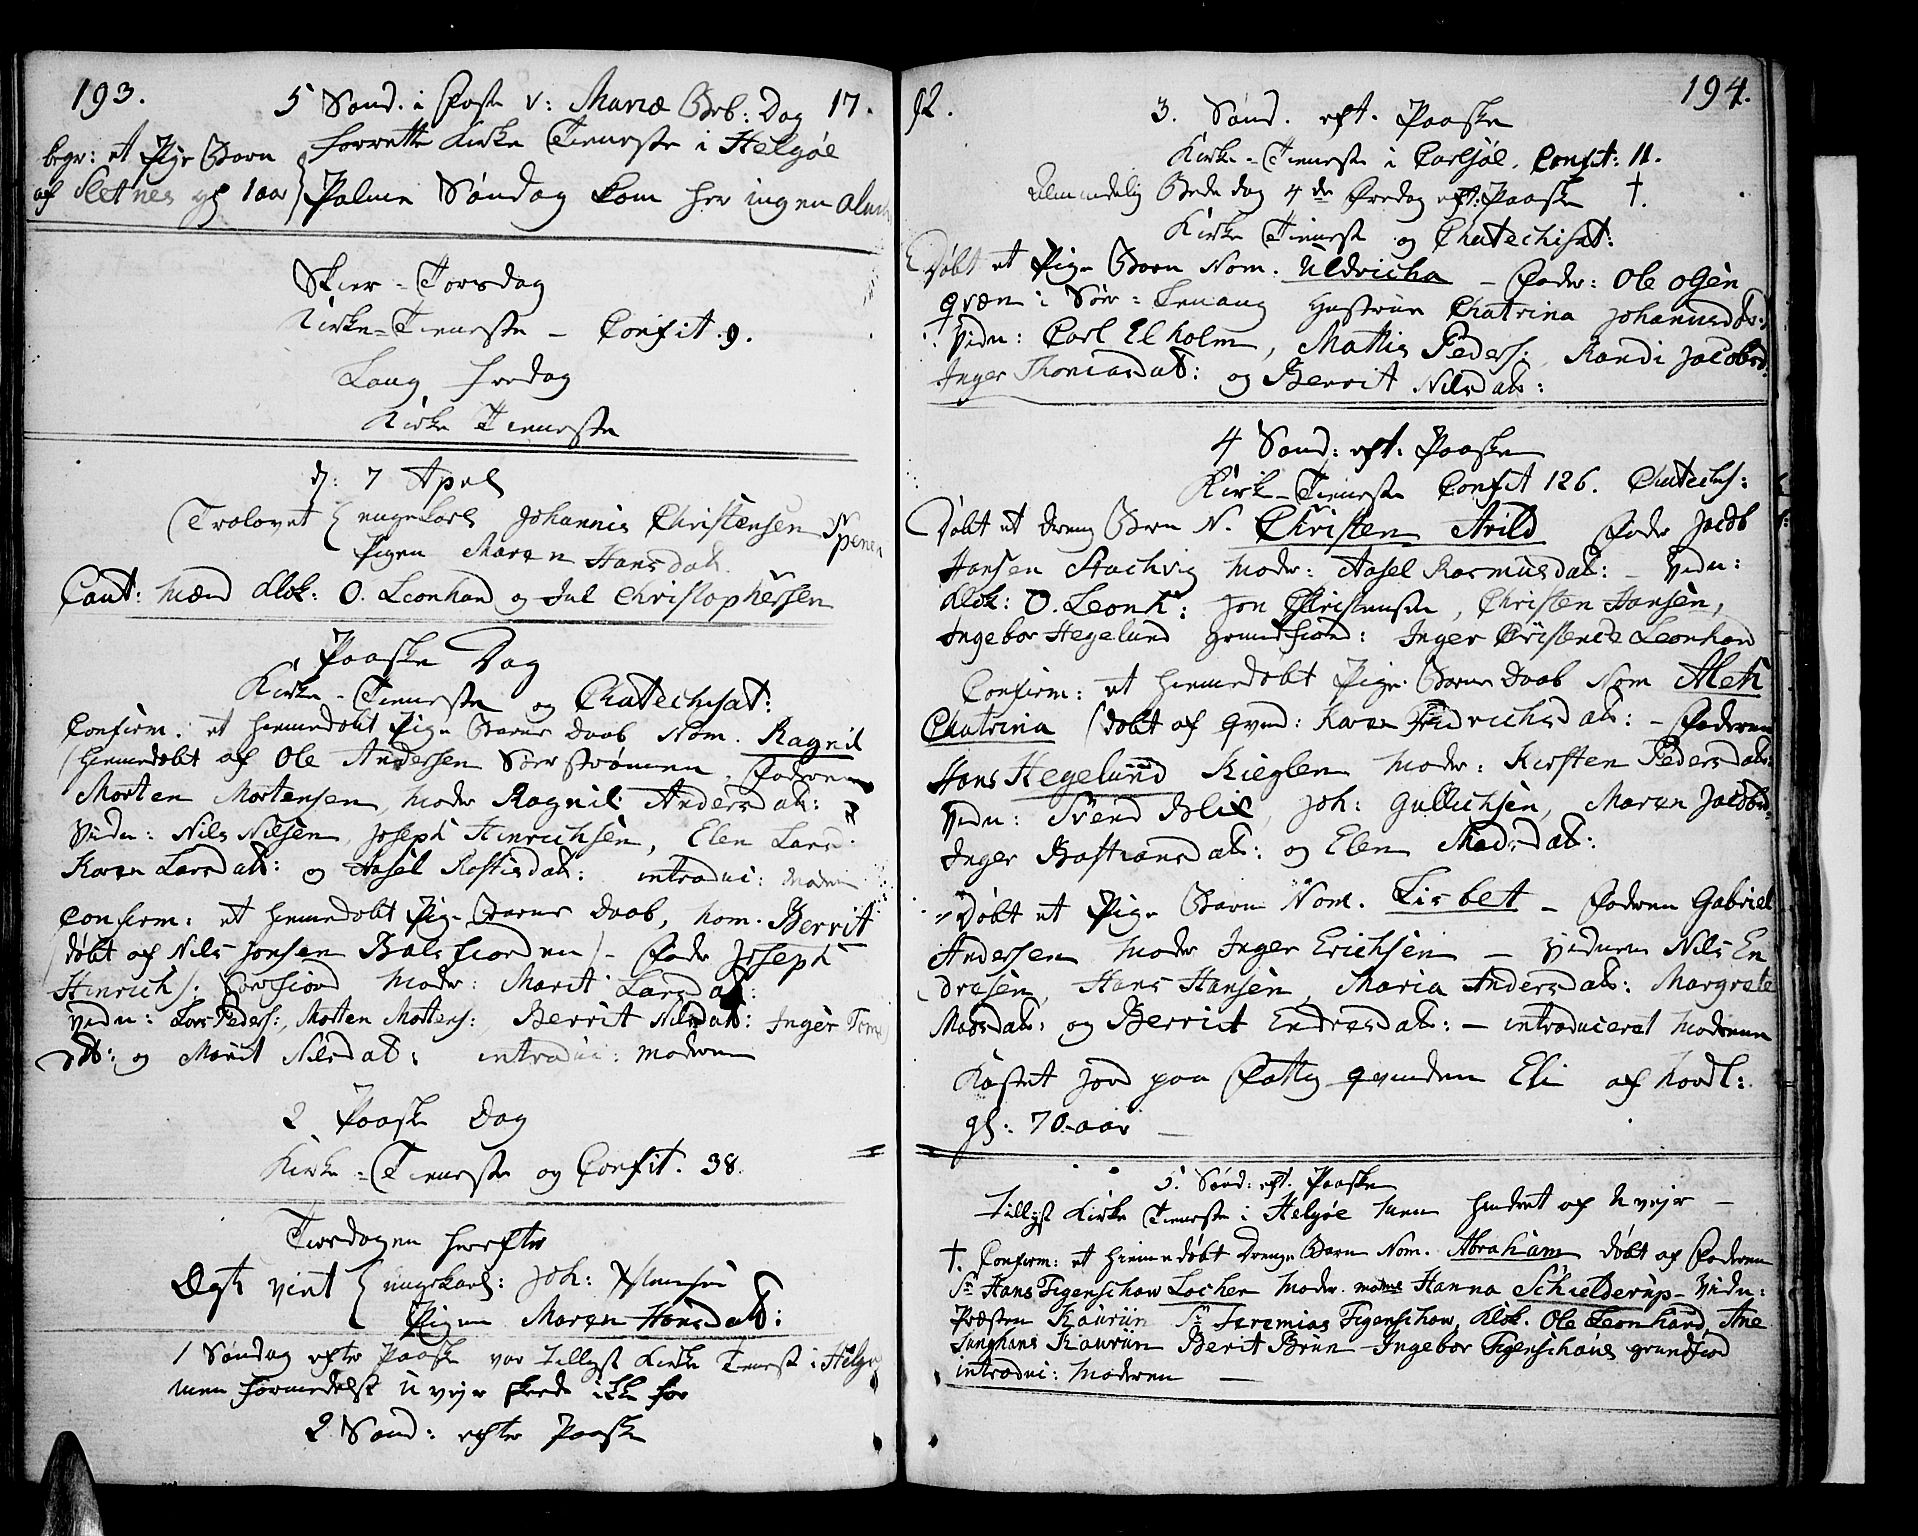 193.
5 Sønd. i Faste v: Mariæ Beb: Dag 17
forrette Kirke Tieneste i Helgøe
begr: et Pige Barn
af Sletnes gl 1 aar
Palme Søndag kom her ingen almu
Skier-Torsdag
Kirke-Tieneste - Confit. 9.
Lang fredag
Kirke Tieneste
d: 7 Apel
Trolovet ungekarl Johannis Christensen
Pigen Maren Hansdat.
Caut: Mænd Klok: O. Leonhard og Jul Christophersen
Paaske Dag
Kirke-Tieneste og Chatechisat:
Confirm: et hiemedøbt Pige Barns Daab Nom. Ragnil
(hiemedøbt af Ole Andersen Sørstrømen, Faderen
Morten Mortensen, Moder Ragnil Andersdat:
Vidn: Nils Nilsen, Joseph Hinrichsen, Elen Larsd:
Karen Larsdat: og Aasel dat: introdui: Moder
Confirm: et hiemedøbt Pige Barns Daab, Nom. Berrit
(døbt af Nils Jonsen Balsfiorden) - Fader Joseph
Hinrichs: Moder: Marit Larsdat:
Vidn: Lars Peders:, Morten Mortens:, Berrit Nilsdat: Inger Tom
dt: og Marit Nilsdat: introdui: Moderen
2 Paaske Dag
Kirke-Tieneste og Confit. 38.
Tiersdagen herefter
Egte viet ungekarl: Joh:
Pigen Maren Hansdat:
1 Søndag efter Paaske var tillyst Kirke Tienest i Helgø
men formedelst uvejr skede ikke for
2 Sønd: efter Paaske
92.
194.
3. Sønd. eft. Paaske
Kirke-Tieneste i Carlsøe. Confit: 11.
Almindelig Bededag 4de Fredag eft: Paaske †.
Kirke Tieneste og Chatechisat:
Døbt et Pige Barn Nom. Uldricha - Fader: Ole Olsen
qvæn i Sør-Lenang Hustrue Chatrina Johannisdat:
Vidn: Carl Elholm, Mathis Peders:, Randi Jacobsd.
Inger Thomasdat: og Berrit Nilsdat:
4 Sønd: eft: Paaske
Kirk-Tieneste Confit 126. Chatechis:
Døbt et dreng Barn N. Christen Arild Fader Jacob
Hansen Stachvig Moder: Aasel Rasmusdat: - Vidn:
Klok: O. Leonh: Jon Christensen, Christen Hansen,
Ingebor Hegelund grundfiord: Inger Christence Leonhard
Confirm: et hiemedøbt Pige Barns Daab Nom Aleth
Chatrina (døbt af qvind: Karen Fridrichsdat: - Faderen
Hans Hegelund Kieglen Moder: Kirsten Pedersdat:
Vidn: Svend Blix, Joh: Gullichsen, Maren Jacobsd:
Inger Bastiansdat: og Elen Madsdat:
Døbt et Pige Barn Nom. Lisbet - Faderen Gabriel
Andersen Moder Inger Erichsen - Vidnerne Nils En
dresen, Hans Hansen, Maria Andersdat: Margrete
Madsdat: og Berrit Endresdat: - introduceret Moderen
Kastet Jord paa Fattig qvinden Eli af
gl: 70 aar -
5. Sønd: eft. Paaske
tillyst Kirke Tieneste i Helgøe men hindret af uvejr -
†. Confirm: et hiemedøbt Drenge Barn Nom. Abraham døbt af Faderen
Sr Hans Figenschow Locher Moder Hanna Schielderup - Vidn:
Præsten Kauriin Sr Jeremias Figenschow, Klok. Ole Leonhard, Ane
Junghans Kauriin Berit Brun - Ingebor Figenschous grundfiord
introdui: Moderen -